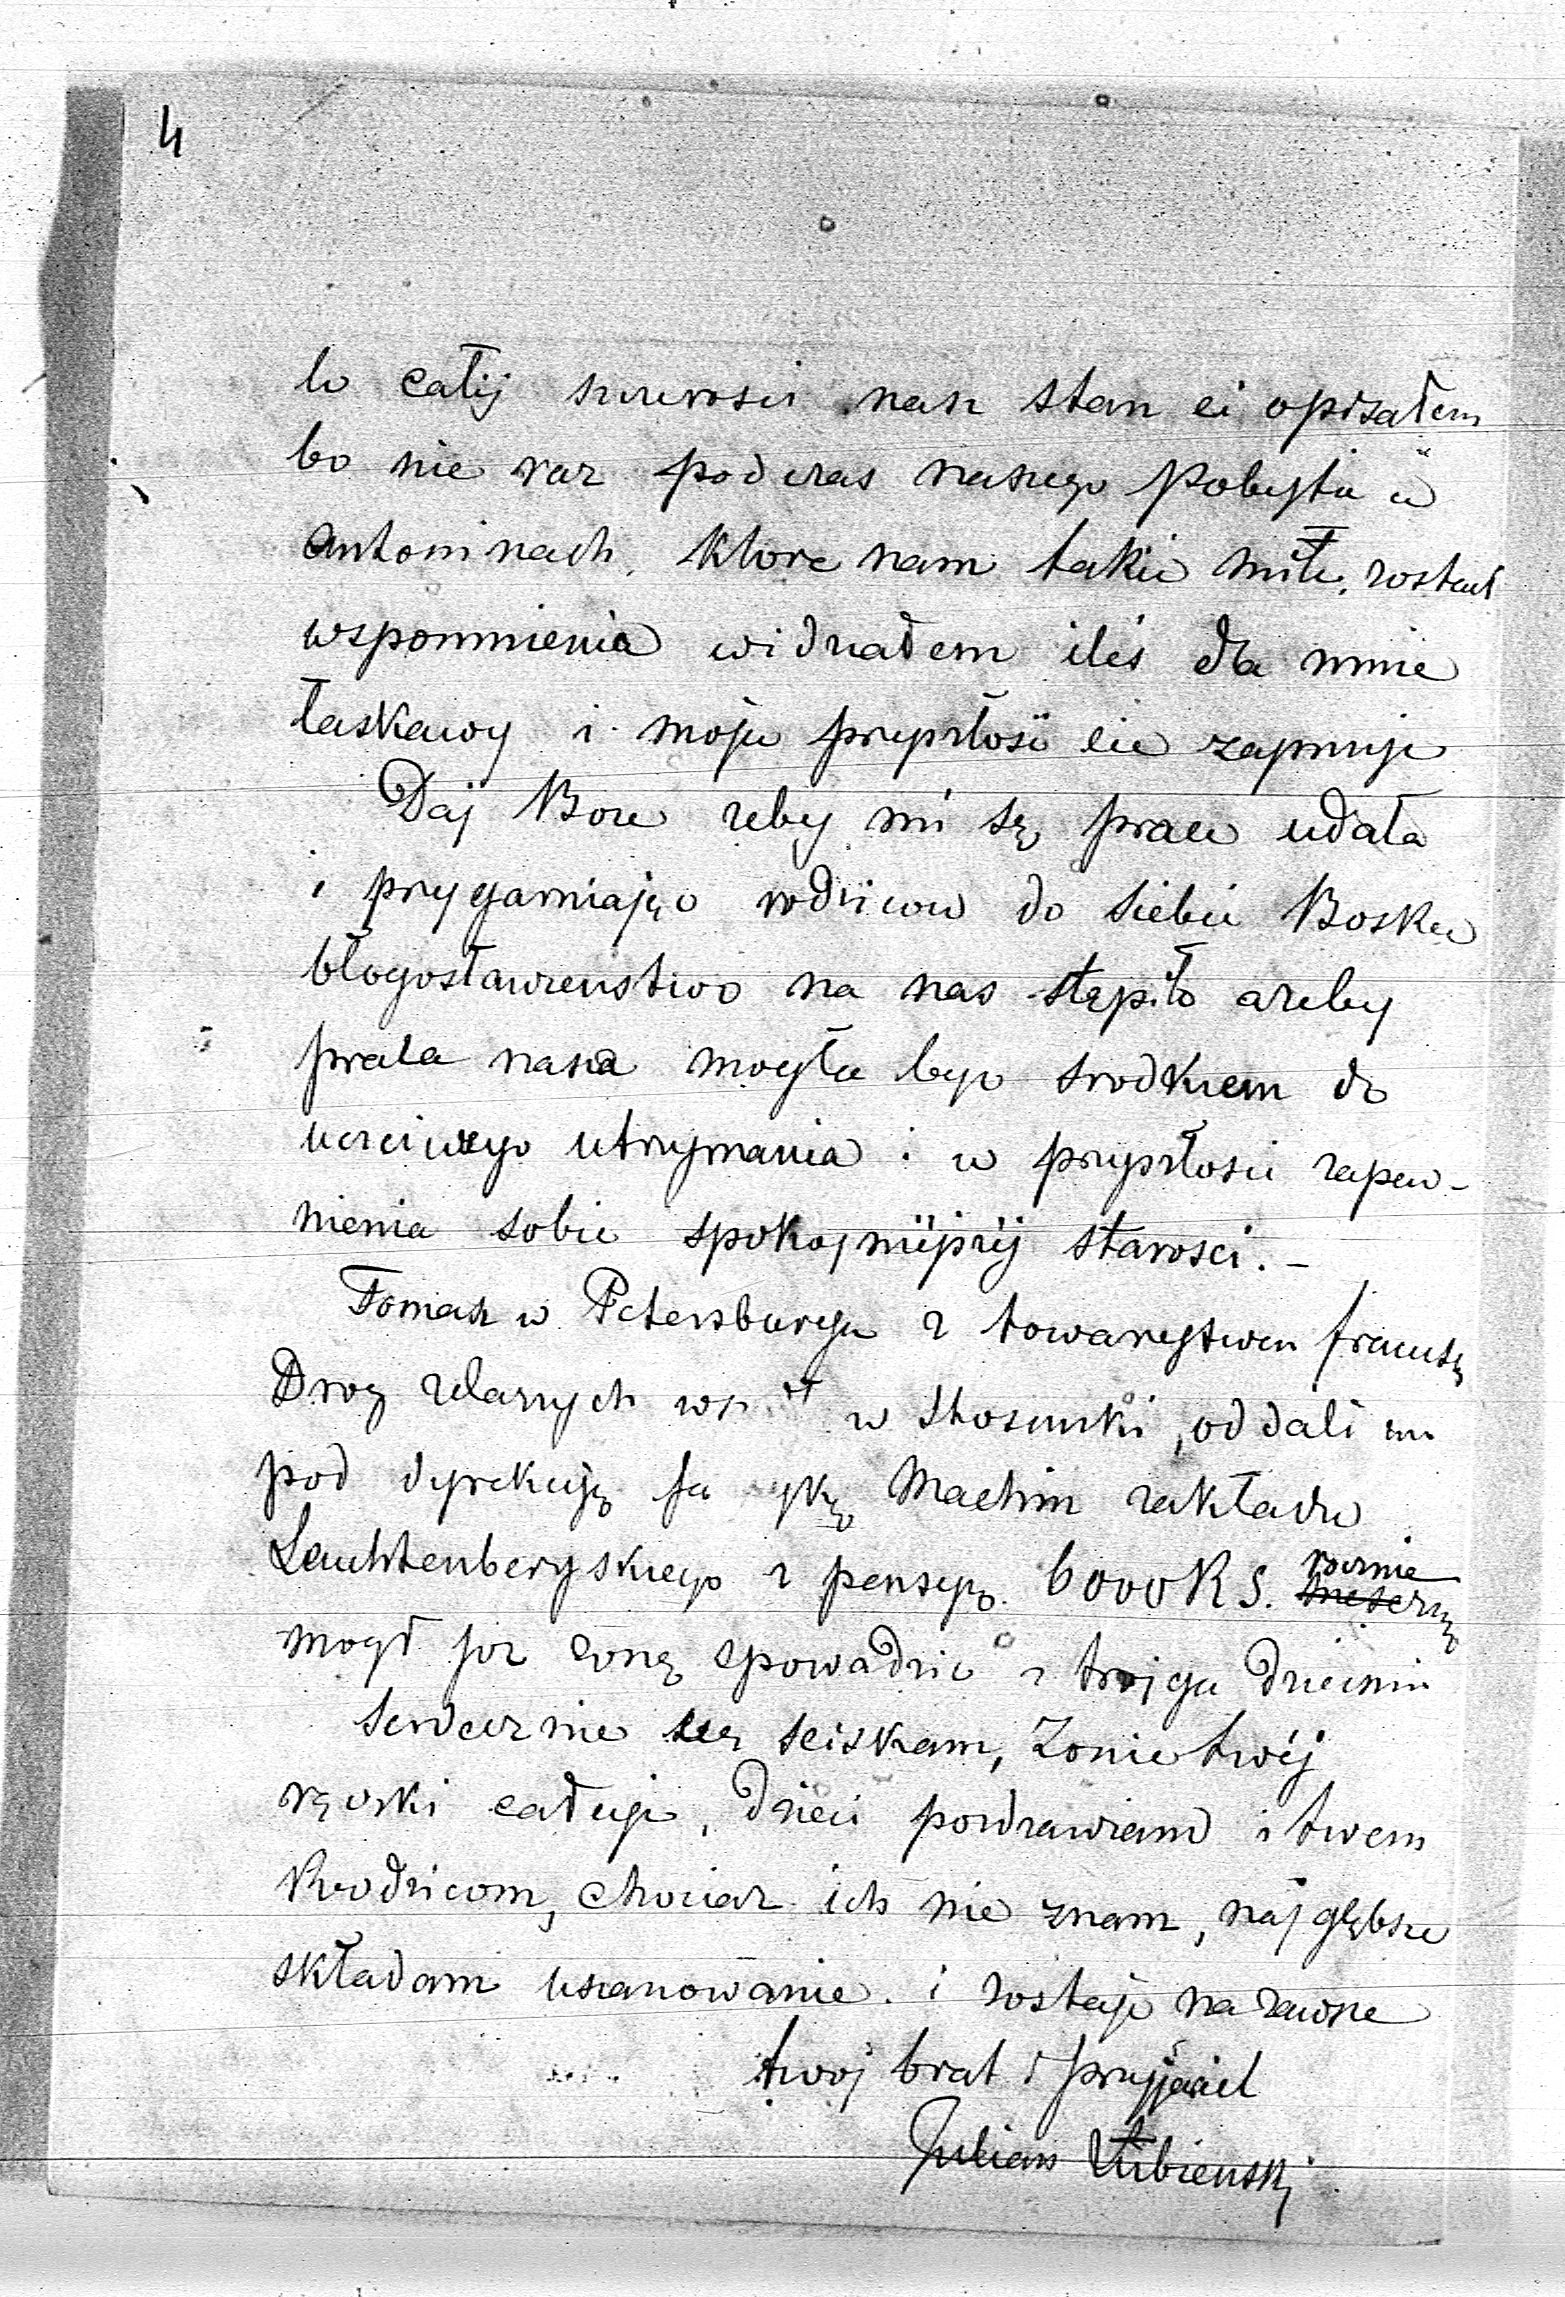 4
W całij szczerosci nasz stan ci opisałem
bo nie raz podczas naszego pobytu w
Antoninach, ktore nam takie miłe, zostaw
wspomnienia widziałem iles dla mnie
łaskawy i moja przyszłosc cie zajmuje
Daj Boze zeby mi sę praca udała
i przygarniając rodzicow do siebie Boskie
błogosławienstwo na nas stąpiło azeby
praca nasza mogła byc srodkiem do
uczciwego utrzymania i w przyszłosci zapew-
nienia sobie spokojniejszij starosci. -
Tomasz w Petersburgu z towarzystwem francusk
Drog zelaznych w stosunki, oddali mu
pod dyrekcyją Machin zakładu
Leuchtenbergskiego z pensyją 6000 R S. rocznie
mogł juz zonę spowadzic z trojga dziecmi
Serdecznie cię sciskam, Zonie twéj
rączki całuje, dzieci pozdrawiam i twem
Rrodzicom, chociaz ich nie znam, najgłębsze
składam uszanowanie. i zostaje na zawsze
twoj brat i przyjaciel
Julian Łubienski